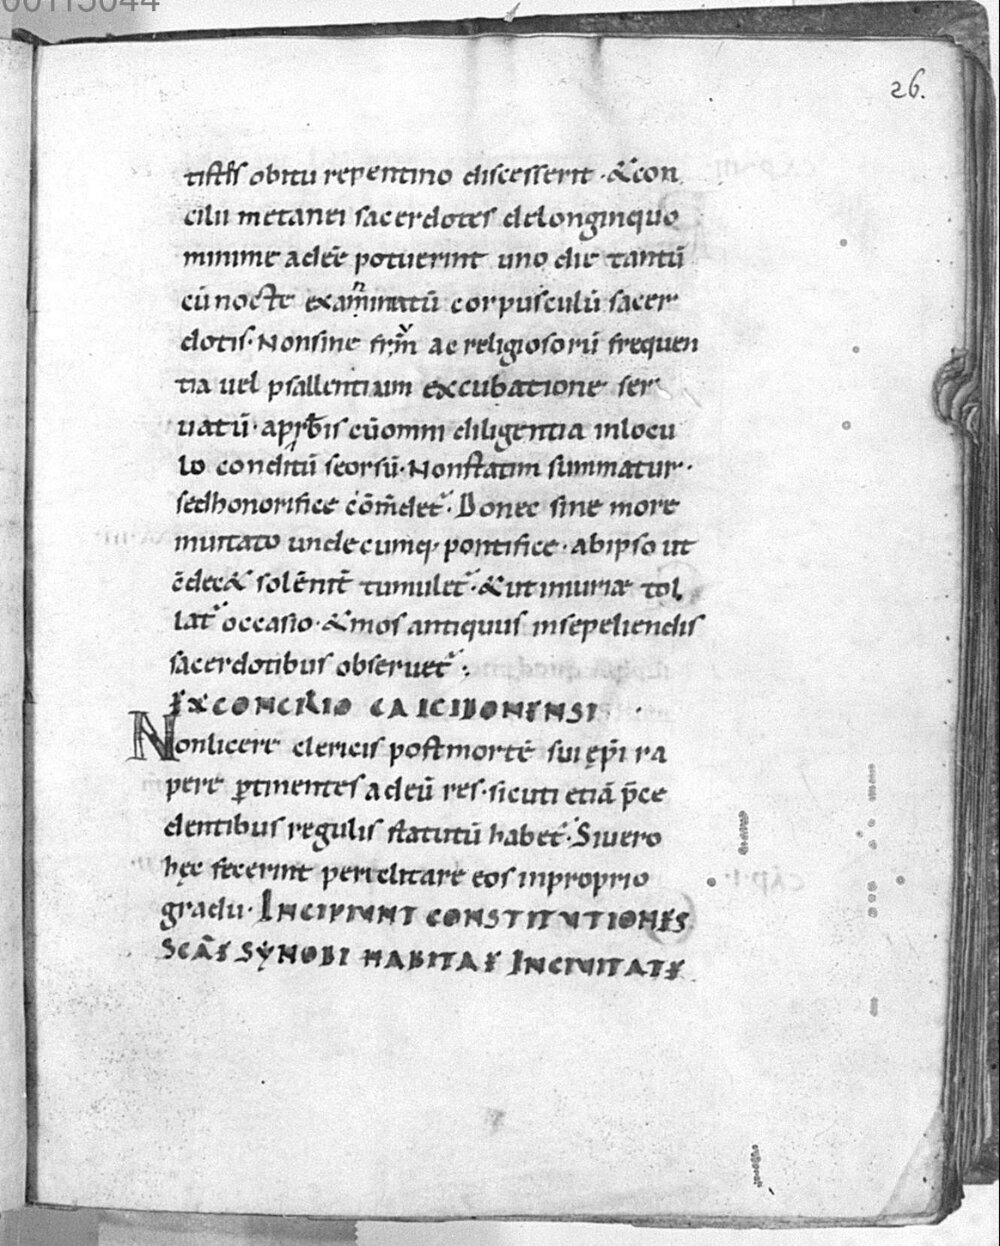 00115044
26.
tistes obitu repentino discesserit · & con
cilii metanei sacerdotes delonginquo
minime adeē potuerint uno die tantū
cū nocte exanimatū corpusculū sacer
dotis · Nonsine frm̄ ac religiosorū frequen
tia uel psallentium excubatione ser
uatū · a prb̄is cū omni diligentia inlocu
lo conditū seorsū · Nonstatim summatur ·
sed honorifice cōm̄det᷑ · Donec sine more
mutato undecumq; pontifice · abipso ut
c̄dec& solēnit̄ tumulet᷑ · & ut iniuriæ tol
lat᷑ occasio · & mos antiquus insepeliendis
sacerdotibus obseruet᷑ :
EX CONCILIO CALCIDONENSI
Nonlicere clericis postmortē sui ep̄i ra
pere ꝑtinentes adeū res · sicuti etiā p̄ce
dentibus regulis statutū habet᷑ · Siuero
hęc fecerint periclitare eos inproprio
gradu · INCIPIUNT CONSTITUTIONES
SCĀE SYNODI HABITAE INCIVITATE